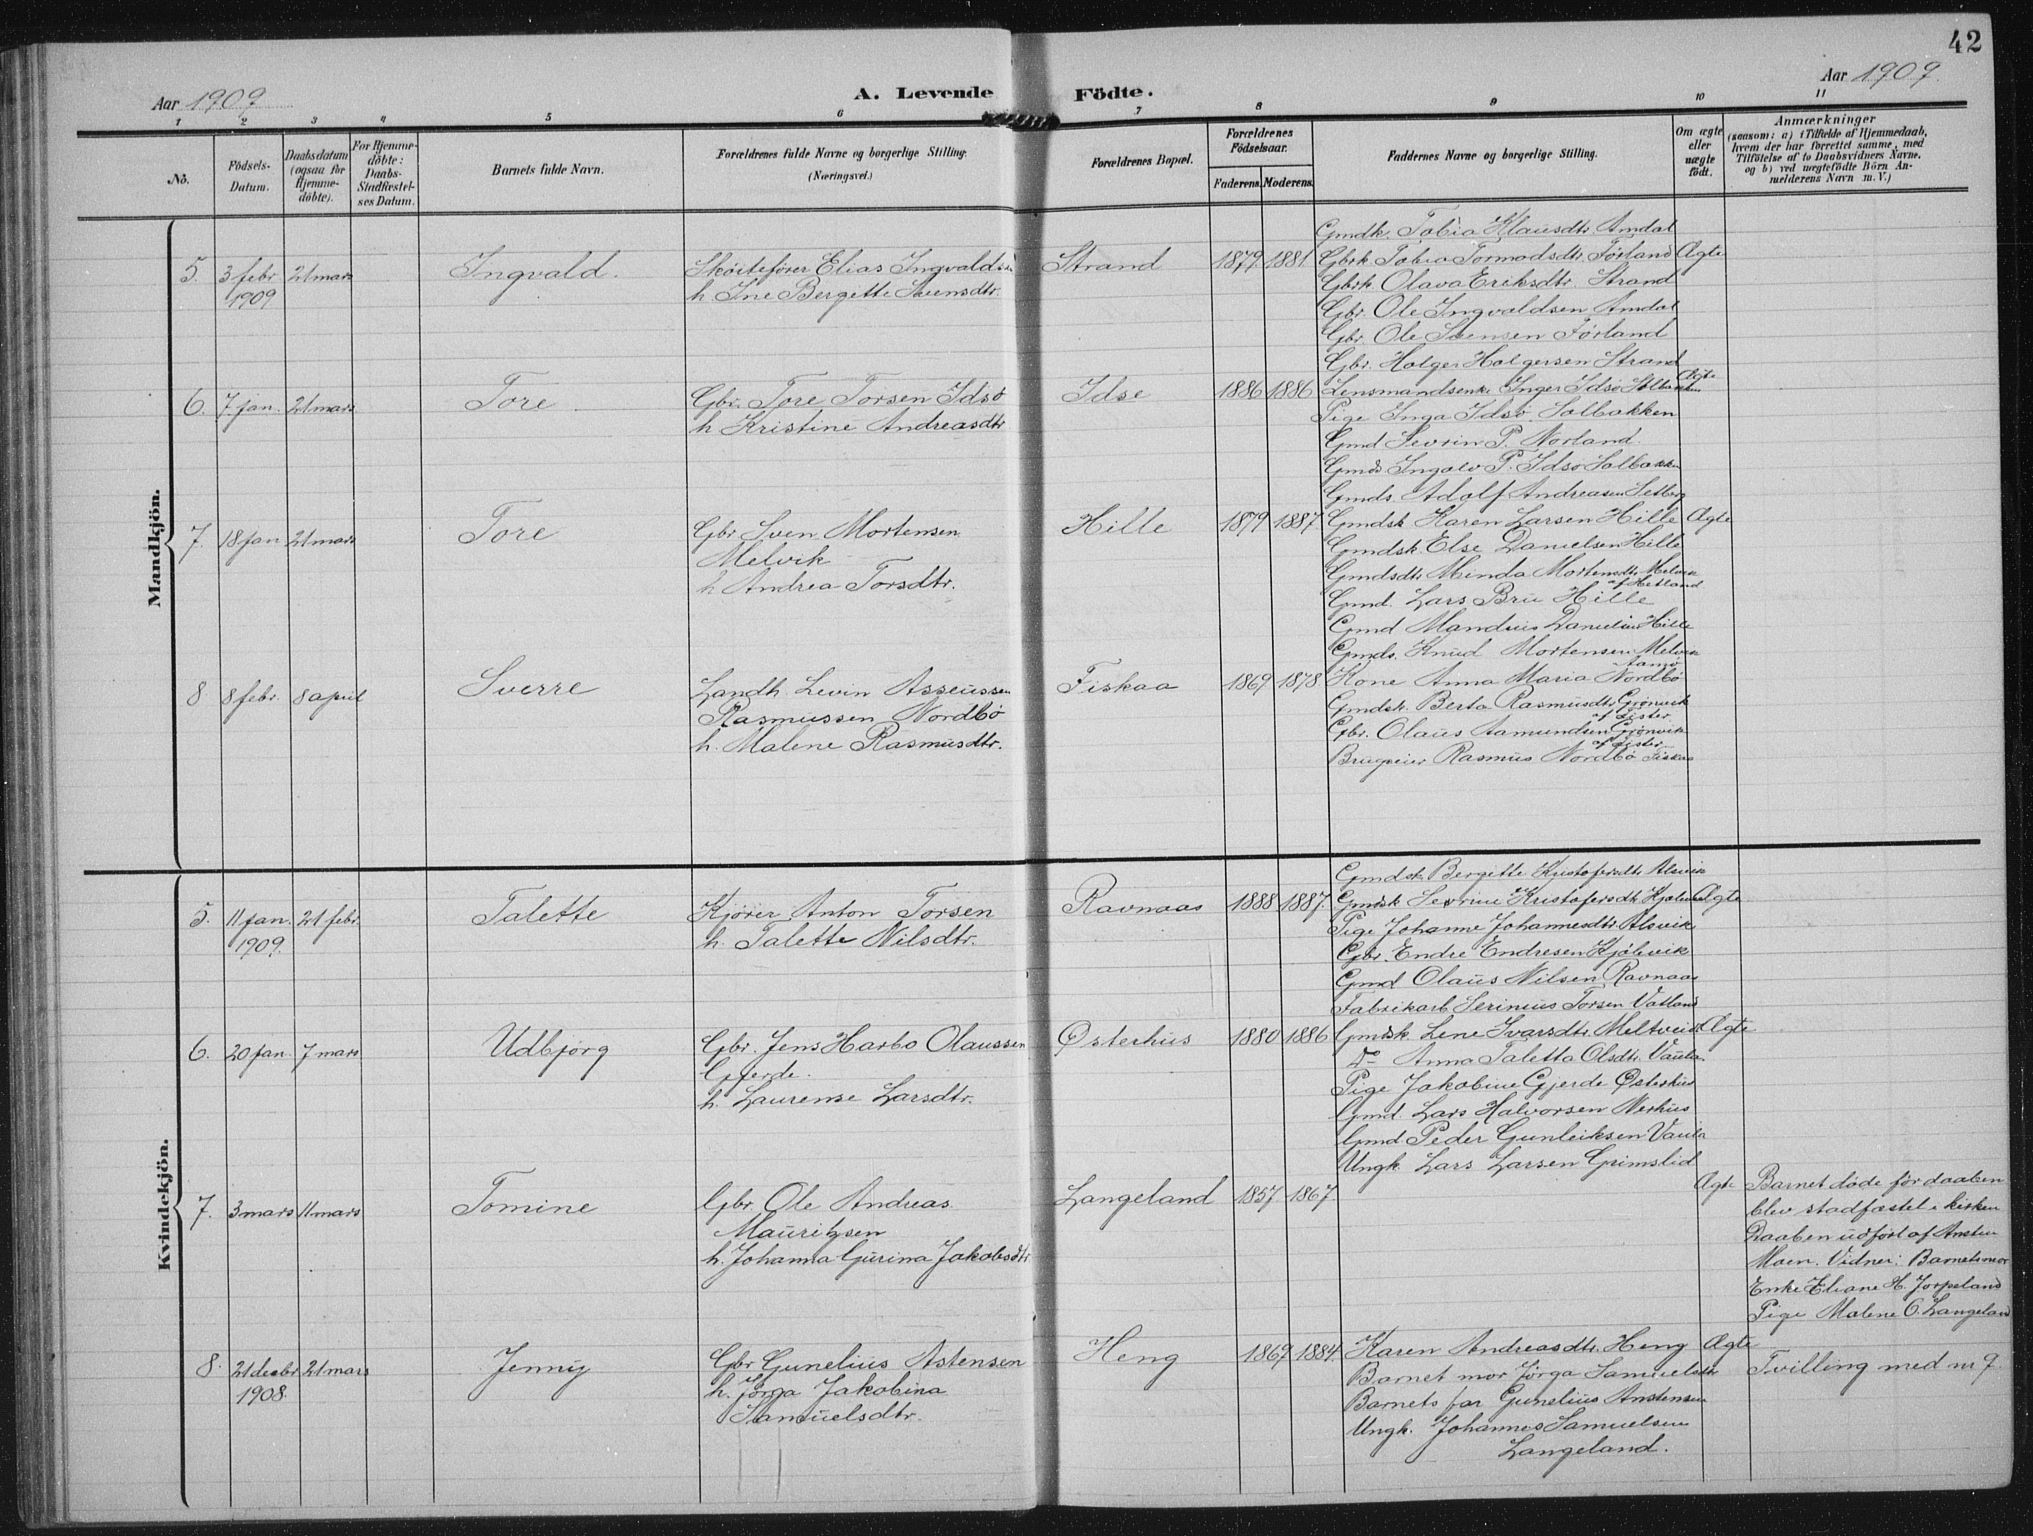 42
Aar 1909
A. Levende Födte.
Aar 1909.
1 2 3 4 5 6 7 8 9 10 11
No.
Födsels-Datum.
Daabsdatum (ogsaa for Hjemme-döbte).
For Hjemme-döbte: Daabs-Stadfæstel-ses Datum.
Barnets fulde Navn.
Forældrenes fulde Navne og borgerlige Stilling.
(Næringsvei.)
Forældrenes Bopæl.
Forældrenes Födselsaar.
Faderens. Moderens.
Faddernes Navne og borgerlige Stilling.
Om ægte eller uægte födt.
Anmærkninger
(saasom: a) i Tilfælde af Hjemmedaab,
hvem der har forrettet samme, med
Tilföielse af to Daabsvidners Navne,
og b) ved uægtefödte Börn An-
melderens Navn m. V.)
Mandkjön.
5. 3 febr. 1909 21 mars Ingvald.
Skøitefører Elias Ingvaldsen
h. Ine Bergitte Svensdtr.
Strand 1879 1881 Ægte
Gmdk. Tobia Klausdtr. Amdal
Gbrk. Tobia Tormodsdtr. Førland
Gbrk. Olava Eriksdtr. Strand
Gbr. Ole Ingvaldsen Amdal
Gbr. Ole Svensen Førland
Gbr. Holger Holgersen Strand
6. 7 jan. 21 mars Tore
Gbr. Tore Torsen Idsø
h. Kristine Andreasdtr
Idse 1886 1886 Ægte
Lensmandsenke Inger Idsø Solbakken
Pige Inga Idsø Solbakken
Gmd Sevrin P. Norland.
Gmds. Ingolv P. Idsø Solbakken
Gmds. Adolf Andreasen Selberg
7. 18 jan 21 mars Tore
Gbr. Sven Mortensen
Melvik
h. Andrea Torsdtr.
Hille 1879 1887 Ægte
Gmdsk. Karen Larsen Hille
Gmdsk. Else Danielsen Hille
Gmdsdtr. Minda Mortensdtr. Melvik
af Hetland
Gmd. Lars Bru Hille
Gmd Mandius Danielsen Hille
Gmds. Knud Mortensen Melvik
8 8 febr. 8 april Sverre
Landh. Levin Asseussen
Rasmussen Nordbø
h. Malene Rasmusdtr.
Fiskaa 1869 1878
Kone Anna Maria Nordbø
Gmdsk. Berta Rasmusdtr. Grønvik
af Lister
Gbr. Olaus Aamundsen Grønvik
af Lister
Rasmus Nordbø Fiskaa
Kvindekjön.
5. 11 jan. 1909. 21 febr. Talette
Kjører Anton Torsen
h. Talette Nilsdtr.
Ravnaas 1888 1887. Ægte
Gmdsk. Bergitte Kristofersdtr. Alsvik
Gmdsk. Sevrine Kristofersdtr.
Pige Johanne Johannesdtr. Alsvik
Gbr. Endre Endresen Kjølevik
Gmd Olaus Nilsen Ravnaas
Fabrikarb. Serinius Torsen Vatland
6. 20 jan 7 mars Udbjørg
Gbr. Jens Harbo Olaussen
Gjerde.
h. Laurense Larsdtr.
Østerhus 1880 1886 Ægte
Gmdsk. Lene Ivarsdtr. Meltveid
Do Anna Taletta Olsdtr. Vaula
Pige Jakobine Gjerde Østerhus
Gmd. Lars Halvorsen Nerhus
Gmd Peder Gunleiksen Vaula
Ungk. Lars Larsen Grimslid
7. 3 mars 11 mars Tomine
Gbr. Ole Andreas
Mauritzsen
h. Johanna Gurina Jakobsdtr
Langeland 1857 1867. Ægte
Barnet døde før daaben
blev stadfæstet i kirken
Daaben udført af Ansten
Moen. Vidner: Barnets mor
Enke Eliane A. Jørpeland
Pige Malene O. Langeland
8. 21 decbr 1908. 21 mars Jenny
Gbr Gunelius Astensen
h. Jørga Jakobina
Samuelsdtr.
Heng 1869 1884. Ægte
Karen Andreasdtr. Heng
Barnet mor Jørga Samuelsdtr
Barnets far Gunelius Anstensen
Ungk. Johannes Samuelsen
Langeland.
Tvilling med nr 9.